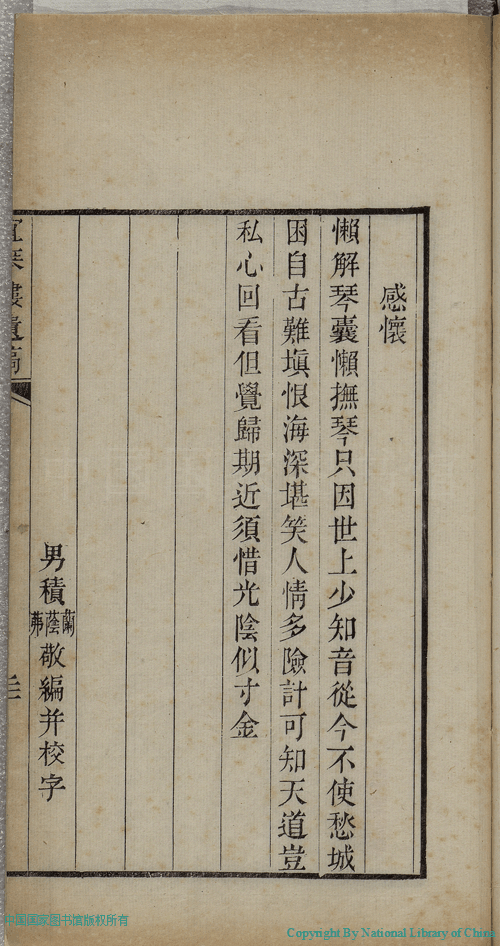 感懷
懶解琴囊懶撫琴只因世上少知音從今不使愁城
困自古難塡恨海深堪笑人情多險計可知天道豈
私心回看但覺歸期近須惜光陰似寸金
男積蘭蔭茀敬編并校字
樓遺稿
中国国家图书馆版权所有
Copyright By National Library of China